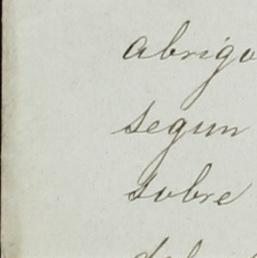 abrigo
segun
sobre